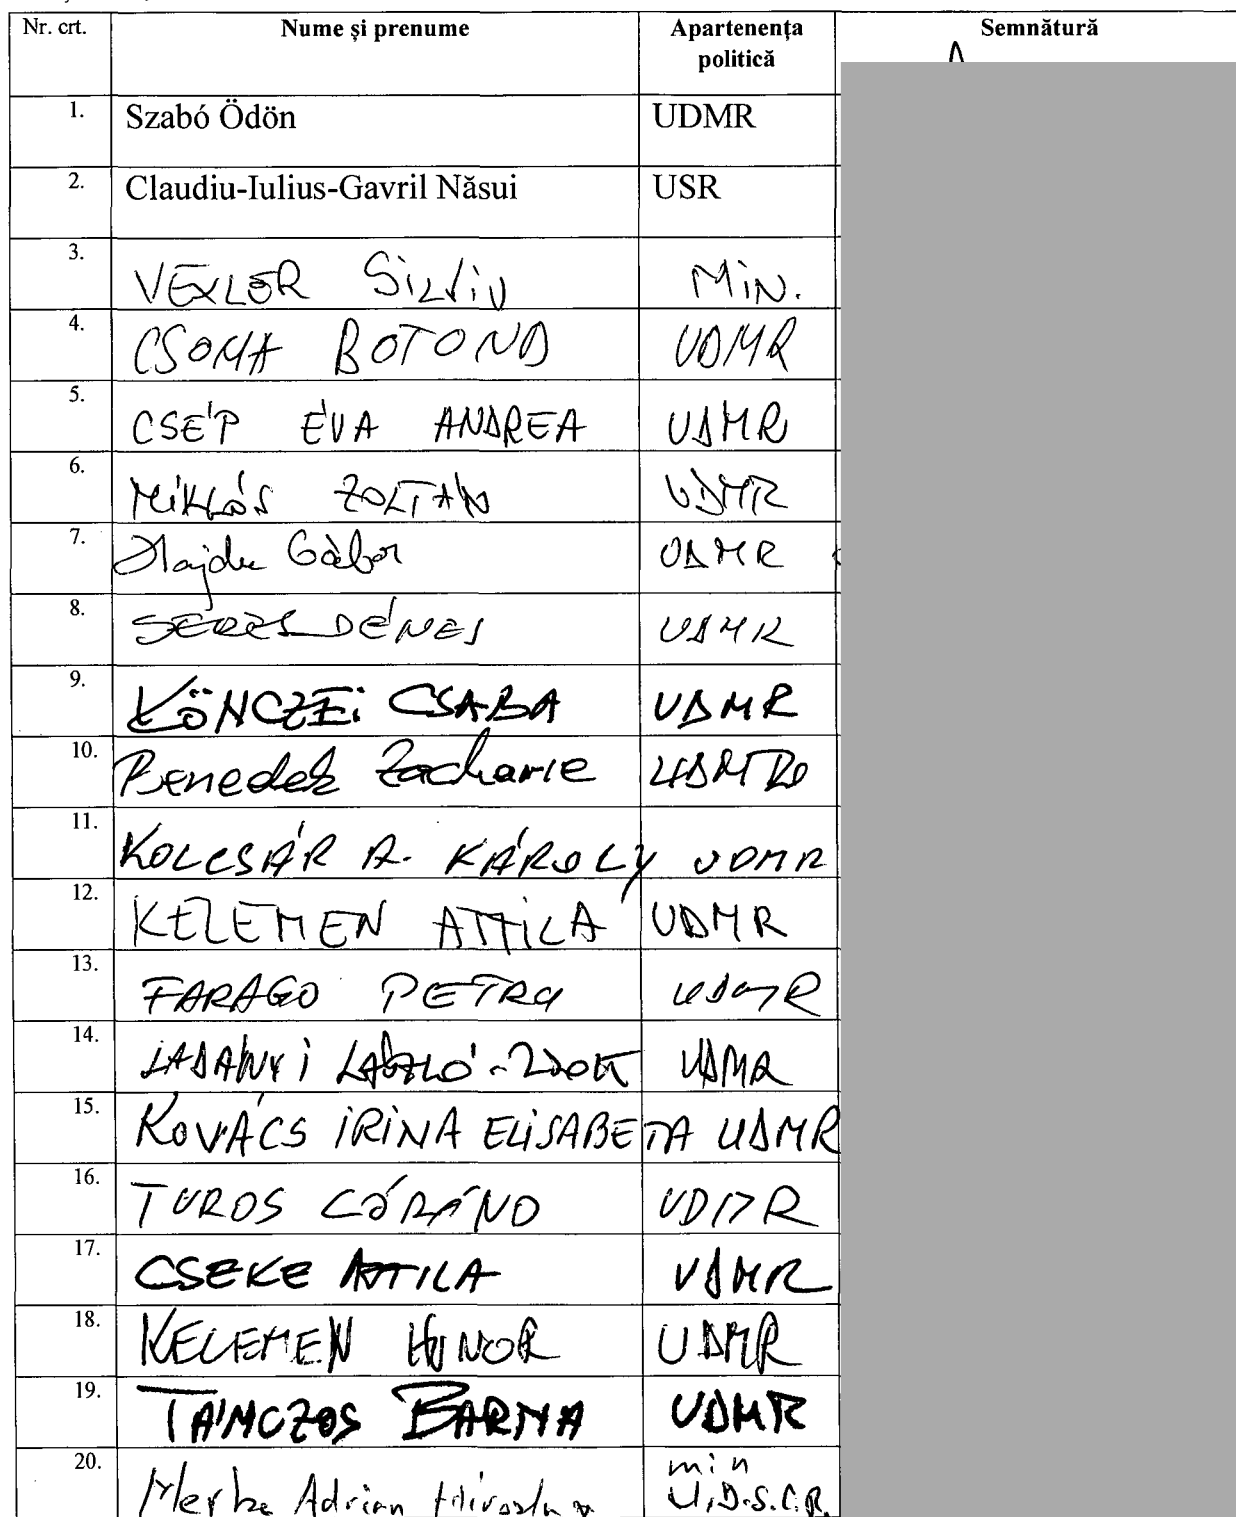 Nr. crt. Nume și prenume Apartenența politică Semnătură
1. Szabó Ödön UDMR
2. Claudiu-Iulius-Gavril Năsui USR
3. VEXLER Silviu Min.
4. CSOMA BOTOND UDMR
5. CSÉP ÉVA ANDREA UDMR
6. MIKLÓS ZOLTÁN UDMR
7. Hajdu Gábor UDMR
8. SERES DÉNES UDMR
9. KÖNCZEI CSABA UDMR
10. Benedek Zacharie UDMR
11. KOLCSÁR A. KÁROLY UDMR
12. KELEMEN ATTILA UDMR
13. FARAGO PETRA UDMR
14. LADÁNYI LÁSZLÓ-ZSOLT UDMR
15. KOVÁCS IRINA ELISABETA UDMR
16. TUROS LÓRÁND UDMR
17. CSEKE ATTILA UDMR
18. KELEMEN HUNOR UDMR
19. TÁNCZOS BARNA UDMR
20. Merka Adrian Miroslav min U.D.S.C.R.